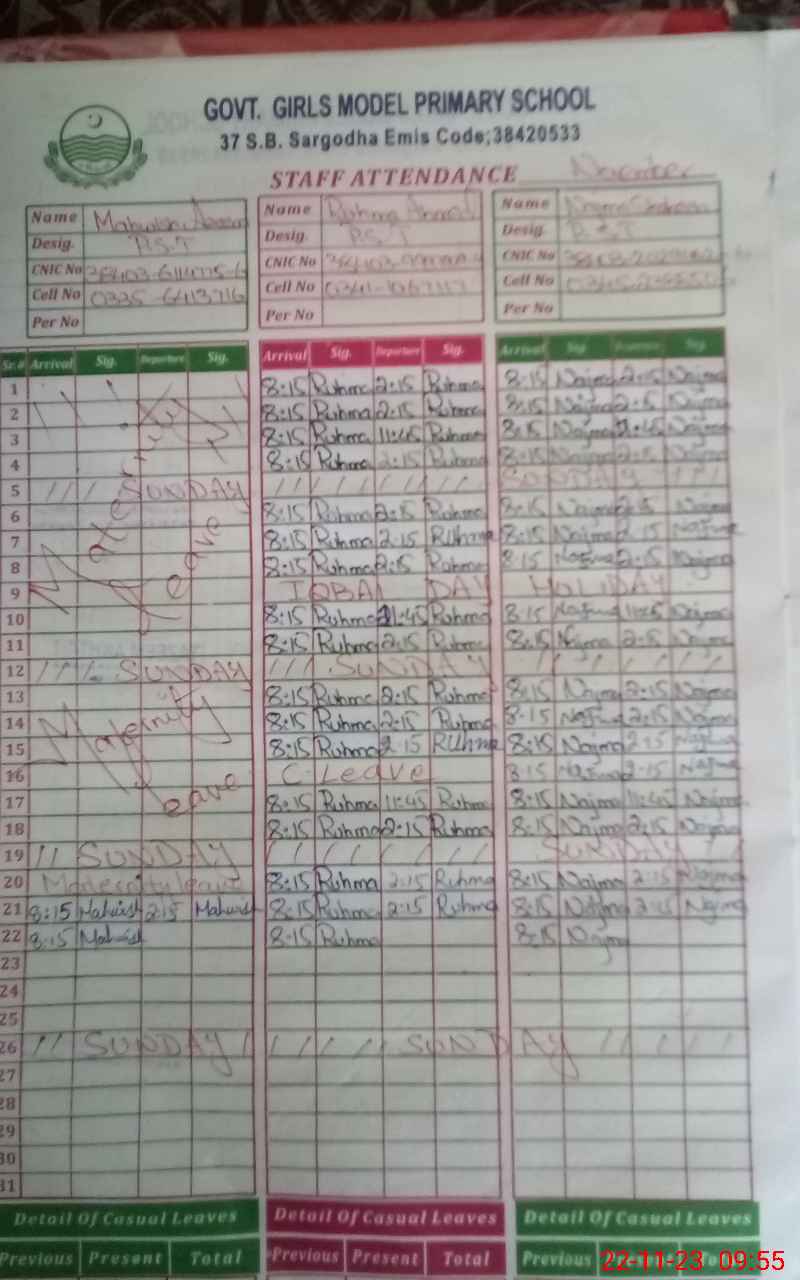 GOVT. GIRLS MODEL PRIMARY SCHOOL
37 S.B. Sargodha Emis Code;38420533
STAFF ATTENDANCE November
Name Name Ruhma Name Najma
Desig. P.S.T Desig. P.S.T Desig. P.S.T
CNIC No CNIC No CNIC No
Cell No 0335-6413716 Cell No Cell No
Per No Per No Per No
Sr.# Arrival Sig. Departure Sig. Arrival Sig. Departure Sig. Arrival Sig. Departure Sig.
1 8:15 Ruhma 2:15 Ruhma 8:15 Najma 2:15 Najma
2 8:15 Ruhma 2:15 Ruhma 8:15 Najma 2:15 Najma
3 8:15 Ruhma 11:45 Ruhma 8:15 Najma Najma
4 8:15 Ruhma 2:15 Ruhma 8:15 Najma 2:15 Najma
Maternity Leave
5 SUNDAY SUNDAY
6 8:15 Ruhma 2:15 Ruhma 8:15 Najma 2:15 Najma
7 8:15 Ruhma 2:15 Ruhma 8:15 Najma 2:15 Najma
8 8:15 Ruhma 2:15 Ruhma 8:15 Najma 2:15 Najma
9 IQBAL DAY HOLIDAY
10 8:15 Ruhma 11:45 Ruhma 8:15 Najma 11:45 Najma
11 8:15 Ruhma 2:15 Ruhma 8:15 Najma 2:15 Najma
12 SUNDAY SUNDAY
13 8:15 Ruhma 2:15 Ruhma 8:15 Najma 2:15 Najma
14 8:15 Ruhma 2:15 Ruhma 8:15 Najma 2:15 Najma
15 8:15 Ruhma 2:15 Ruhma 8:15 Najma 2:15 Najma
Maternity Leave
16 C.Leave 8:15 Najma 2:15 Najma
17 8:15 Ruhma 11:45 Ruhma 8:15 Najma 11:45 Najma
18 8:15 Ruhma 2:15 Ruhma 8:15 Najma 2:15 Najma
19 SUNDAY SUNDAY
20 Maternity leave 8:15 Ruhma 2:15 Ruhma 8:15 Najma 2:15 Najma
21 8:15 Mahwish 2:15 Mahwish 8:15 Ruhma 2:15 Ruhma 8:15 Najma 2:15 Najma
22 8:15 Mahwish 8:15 Ruhma 8:15 Najma
23
24
25
26 SUNDAY SUNDAY
27
28
29
30
31
Detail Of Casual Leaves Detail Of Casual Leaves Detail Of Casual Leaves
Previous Present Total Previous Present Total Previous
22-11-23 09:55